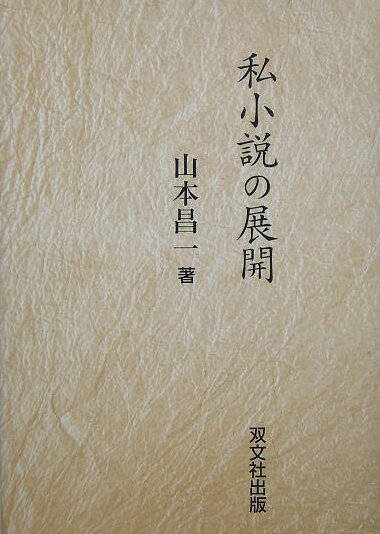 私小説の展開
山本昌一 著
双文社出版